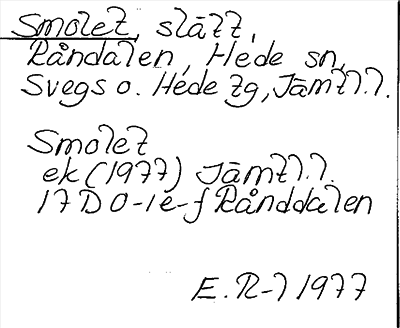 Smolet, slått,
Råndalen, Hede sn,
Svegs o. Hede tg, Jämtl.l.
Smolet
ek (1977) Jämtl.l.
17D 0-1e-f Rånddalen
E.R-l 1977